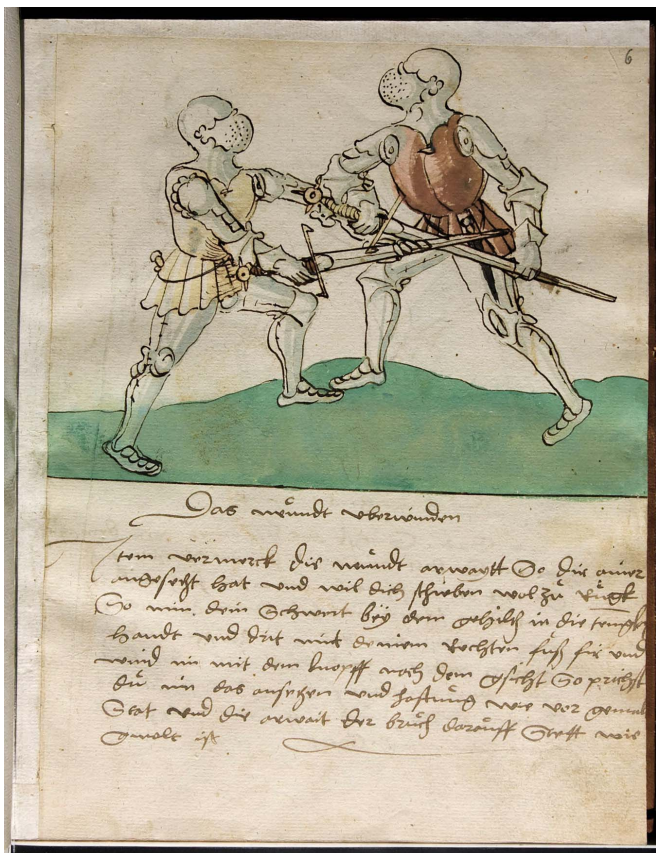 6
Das wundt uberwinden
Item vermerck die wundt arwaytt So dir ainer
angesecht hat und wil dich schieben wol zů Rugk
So nim dein Schwert bey dem gehiltz in die
Handt und drit mit deinem Rechten fuß für und
wind im mit dem knopff nach dem gsicht So prichst
dŭ im das ansetzen und hafftŭng wie vor gemalt
Stat und die arwait der brŭch darauff Stett wie
gmolt ist